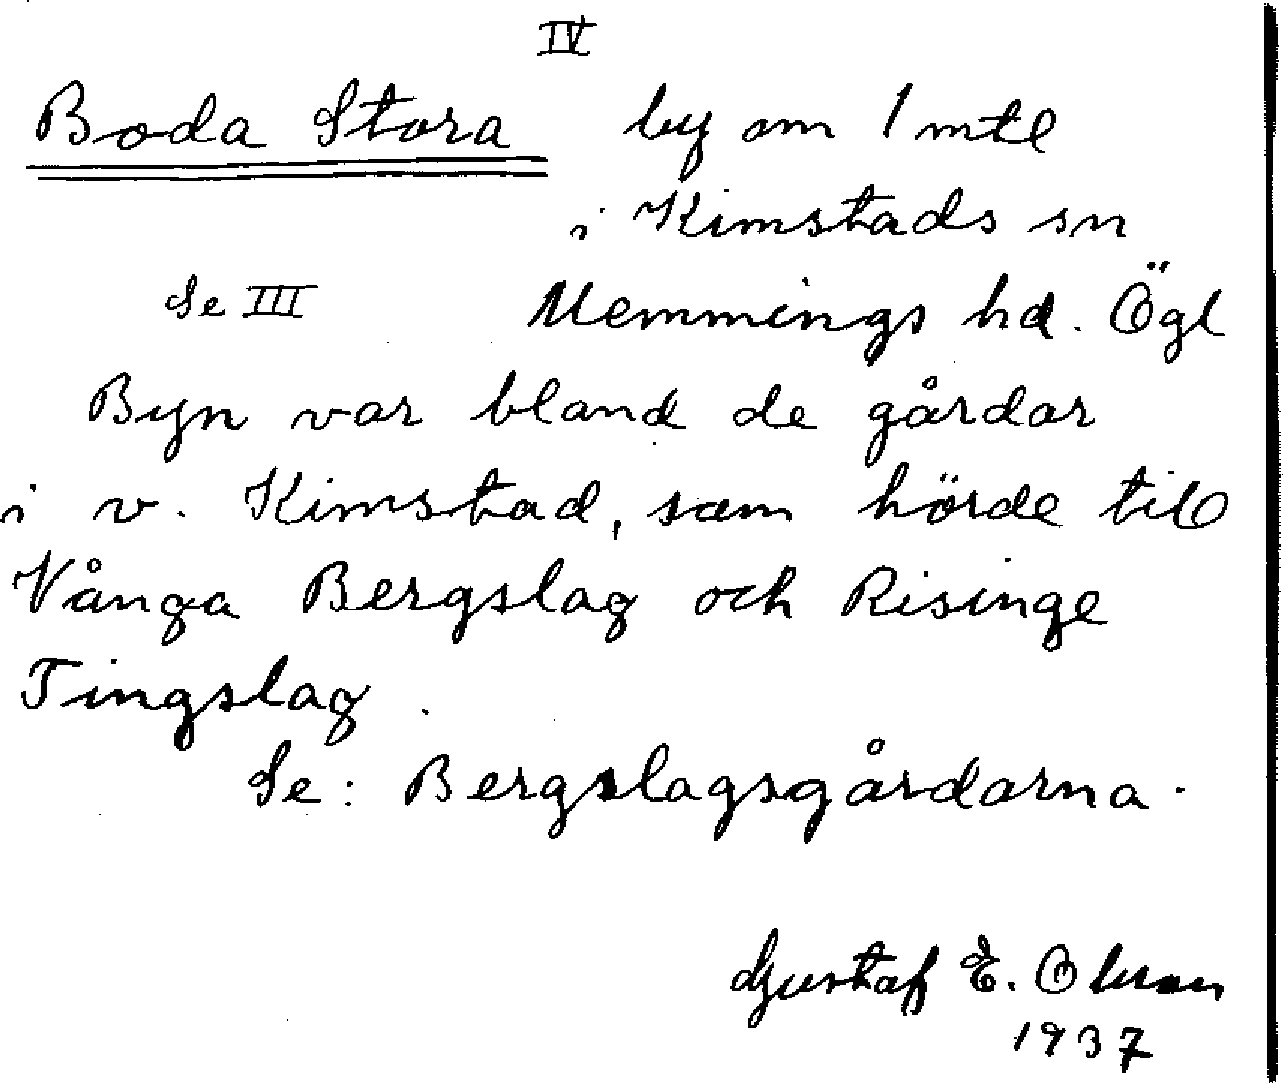 IV
Boda Stora by om 1 mtl
i Kimstads sn
Se III Memmings hd. Ögl
Byn var bland de gårdar
i v. Kimstad, som hörde till
Vånga Bergslag och Risinge
Tingslag.
Se: Bergslagsgårdarna.
Gustaf E. Olsson
1937